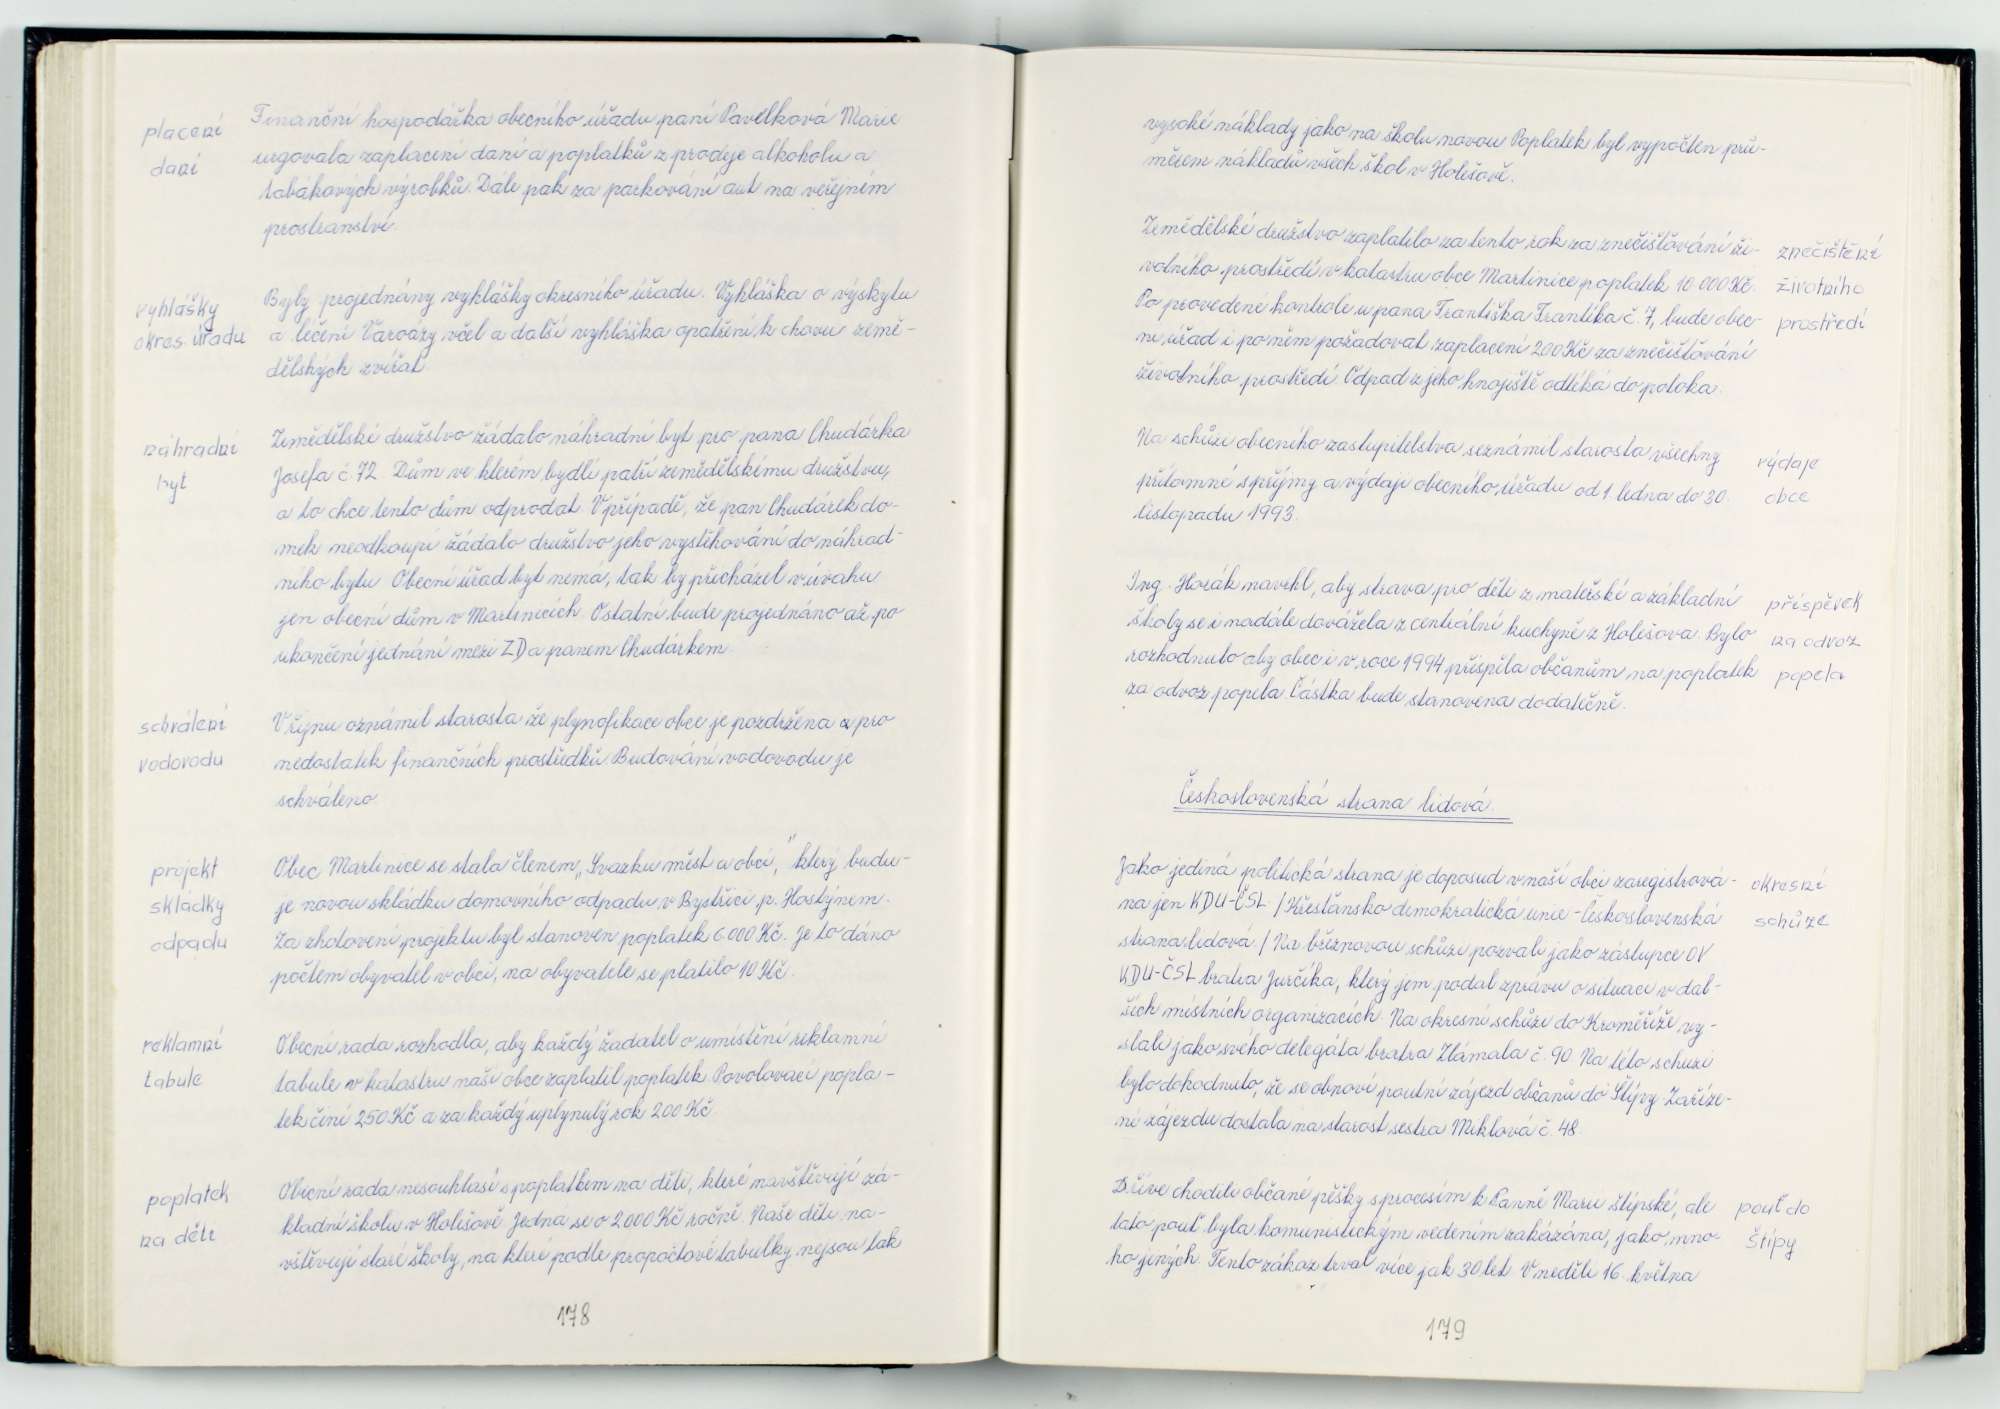 placení
daní
Finanční hospodářka obecního úřadu paní Pavelková Marie
urgovala zaplacení daní a poplatků z prodeje alkoholu a
tabákových výrobků. Dále pak za parkování aut na veřejném
prostranství.
vyhlášky
okres. úřadu
Byly projednány vyhlášky okresního úřadu. Vyhláška o výskytu
a léčení Varoázy včel a další vyhláška opatření k chovu země-
dělských zvířat.
náhradní
byt
Zemědělské družstvo žádalo náhradní byt pro pana Chudárka
Josefa č. 72. Dům ve kterém bydlí patří zemědělskému družstvu,
a to chce tento dům odprodat. V případě, že pan Chudárek do-
mek neodkoupí žádalo družstvo jeho vystěhování do náhrad-
ního bytu. Obecní úřad byt nemá, tak by přicházel v úvahu
jen obecní dům v Martinicích. Ostatní bude projednáno až po
ukončení jednání mezi ZD a panem Chudárkem.
schválení
vodovodu
V říjnu oznámil starosta že plynofikace obce je pozdržena z pro
nedostatek finančních prostředků. Budování vodovodu je
schváleno.
projekt
skládky
odpadu
Obec Martinice se stala členem „Svazku měst a obcí," který budu-
je novou skládku domovního odpadu v Bystřici p. Hostýnem.
Za zhotovení projektu byl stanoven poplatek 6.000 Kč. Je to dáno
počtem obyvatel v obci, na obyvatele se platilo 10 Kč.
reklamní
tabule
Obecní rada rozhodla, aby každý žadatel o umístění reklamní
tabule v katastru naší obce zaplatil poplatek. Povolovací popla-
tek činí 250 Kč a za každý uplynulý rok 200 Kč.
poplatek
na děti
Obecní rada nesouhlasí s poplatkem na děti, které navštěvují zá-
kladní školu v Holešově. Jedná se o 2000 Kč ročně. Naše děti na-
vštěvují staré školy, na které podle propočtové tabulky nejsou tak
178
vysoké náklady jako na školu novou. Poplatek byl vypočten prů-
měrem nákladů všech škol v Holešově.
Zemědělské družstvo zaplatilo za tento rok za znečišťování ži-
votního prostředí v katastru obce Martinice poplatek 10.000 Kč.
Po provedené kontrole u pana Františka Frantíka č. 7, bude obec-
ní úřad i po něm požadovat zaplacení 200 Kč za znečišťování
životního prostředí. Odpad z jeho hnojiště odtéká do potoka.
znečištění
životního
prostředí
Na schůzi obecního zastupitelstva seznámil starosta všechny
přítomné s příjmy a výdaji obecního úřadu od 1. ledna do 30.
listopadu 1993.
výdaje
obce
Ing. Horák navrhl, aby strava pro děti z mateřské a základní
školy se i nadále dovážela z centrální kuchyně z Holešova. Bylo
rozhodnuto aby obec i v roce 1994 přispěla občanům na poplatek
za odvoz popela. Částka bude stanovena dodatečně.
příspěvek
na odvoz
popela
Československá strana lidová.
Jako jediná politická strana je doposud v naší obci zaregistrová-
na jen KDU-ČSL /Křesťansko demokratická unie - Československá
strana lidová./ Na březnovou schůzi pozvali jako zástupce OV
KDU-ČSL bratra Jurčíka, který jem podal zprávu o situaci v dal-
ších místních organizacích. Na okresní schůzi do Kroměříže vy-
slali jako svého delegáta bratra Zlámala č. 90. Na této schůzi
bylo dohodnuto, že se obnoví poutní zájezd občanů do Štípy. Zaříze-
ní zájezdu dostala na starost sestra Miklová č. 48.
okresní
schůze
Dříve chodili občané pěšky s procesím k Panně Marii štípské, ale
tato pouť byla komunistickým vedením zakázána, jako mno-
ho jiných. Tento zákaz trval více jak 30 let. V neděli 16. května
pouť do
Štípy
179